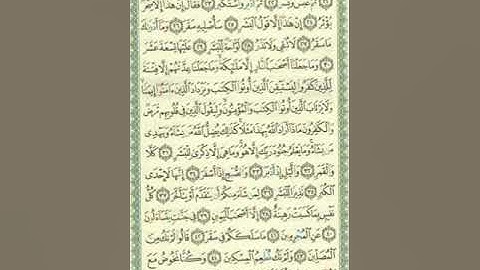 ﴿٢١﴾ ثُمَّ عَبَسَ وَبَسَرَ ﴿٢٢﴾ ثُمَّ أَدْبَرَ وَٱسْتَكْبَرَ ﴿٢٣﴾ فَقَالَ إِنْ هَٰذَآ إِلَّا سِحْرٌ
يُؤْثَرُ ﴿٢٤﴾ إِنْ هَٰذَآ إِلَّا قَوْلُ ٱلْبَشَرِ ﴿٢٥﴾ سَأُصْلِيهِ سَقَرَ ﴿٢٦﴾ وَمَآ أَدْرَىٰكَ
مَا سَقَرُ ﴿٢٧﴾ لَا تُبْقِى وَلَا تَذَرُ ﴿٢٨﴾ لَوَّاحَةٌ لِّلْبَشَرِ ﴿٢٩﴾ عَلَيْهَا تِسْعَةَ عَشَرَ
﴿٣٠﴾ وَمَا جَعَلْنَآ أَصْحَٰبَ ٱلنَّارِ إِلَّا مَلَٰٓئِكَةً وَمَا جَعَلْنَا عِدَّتَهُمْ إِلَّا فِتْنَةً
لِّلَّذِينَ كَفَرُوا۟ لِيَسْتَيْقِنَ ٱلَّذِينَ أُوتُوا۟ ٱلْكِتَٰبَ وَيَزْدَادَ ٱلَّذِينَ ءَامَنُوٓا۟ إِيمَٰنًا
وَلَا يَرْتَابَ ٱلَّذِينَ أُوتُوا۟ ٱلْكِتَٰبَ وَٱلْمُؤْمِنُونَ وَلِيَقُولَ ٱلَّذِينَ فِى قُلُوبِهِم مَّرَضٌ
وَٱلْكَٰفِرُونَ مَاذَآ أَرَادَ ٱللَّهُ بِهَٰذَا مَثَلًا كَذَٰلِكَ يُضِلُّ ٱللَّهُ مَن يَشَآءُ وَيَهْدِى
مَن يَشَآءُ وَمَا يَعْلَمُ جُنُودَ رَبِّكَ إِلَّا هُوَ وَمَا هِىَ إِلَّا ذِكْرَىٰ لِلْبَشَرِ ﴿٣١﴾ كَلَّا
وَٱلْقَمَرِ ﴿٣٢﴾ وَٱلَّيْلِ إِذْ أَدْبَرَ ﴿٣٣﴾ وَٱلصُّبْحِ إِذَآ أَسْفَرَ ﴿٣٤﴾ إِنَّهَا لَإِحْدَى
ٱلْكُبَرِ ﴿٣٥﴾ نَذِيرًا لِّلْبَشَرِ ﴿٣٦﴾ لِمَن شَآءَ مِنكُمْ أَن يَتَقَدَّمَ أَوْ يَتَأَخَّرَ ﴿٣٧﴾ كُلُّ
نَفْسٍۭ بِمَا كَسَبَتْ رَهِينَةٌ ﴿٣٨﴾ إِلَّآ أَصْحَٰبَ ٱلْيَمِينِ ﴿٣٩﴾ فِى جَنَّٰتٍ يَتَسَآءَلُونَ
﴿٤٠﴾ عَنِ ٱلْمُجْرِمِينَ ﴿٤١﴾ مَا سَلَكَكُمْ فِى سَقَرَ ﴿٤٢﴾ قَالُوا۟ لَمْ نَكُ مِنَ
ٱلْمُصَلِّينَ ﴿٤٣﴾ وَلَمْ نَكُ نُطْعِمُ ٱلْمِسْكِينَ ﴿٤٤﴾ وَكُنَّا نَخُوضُ مَعَ